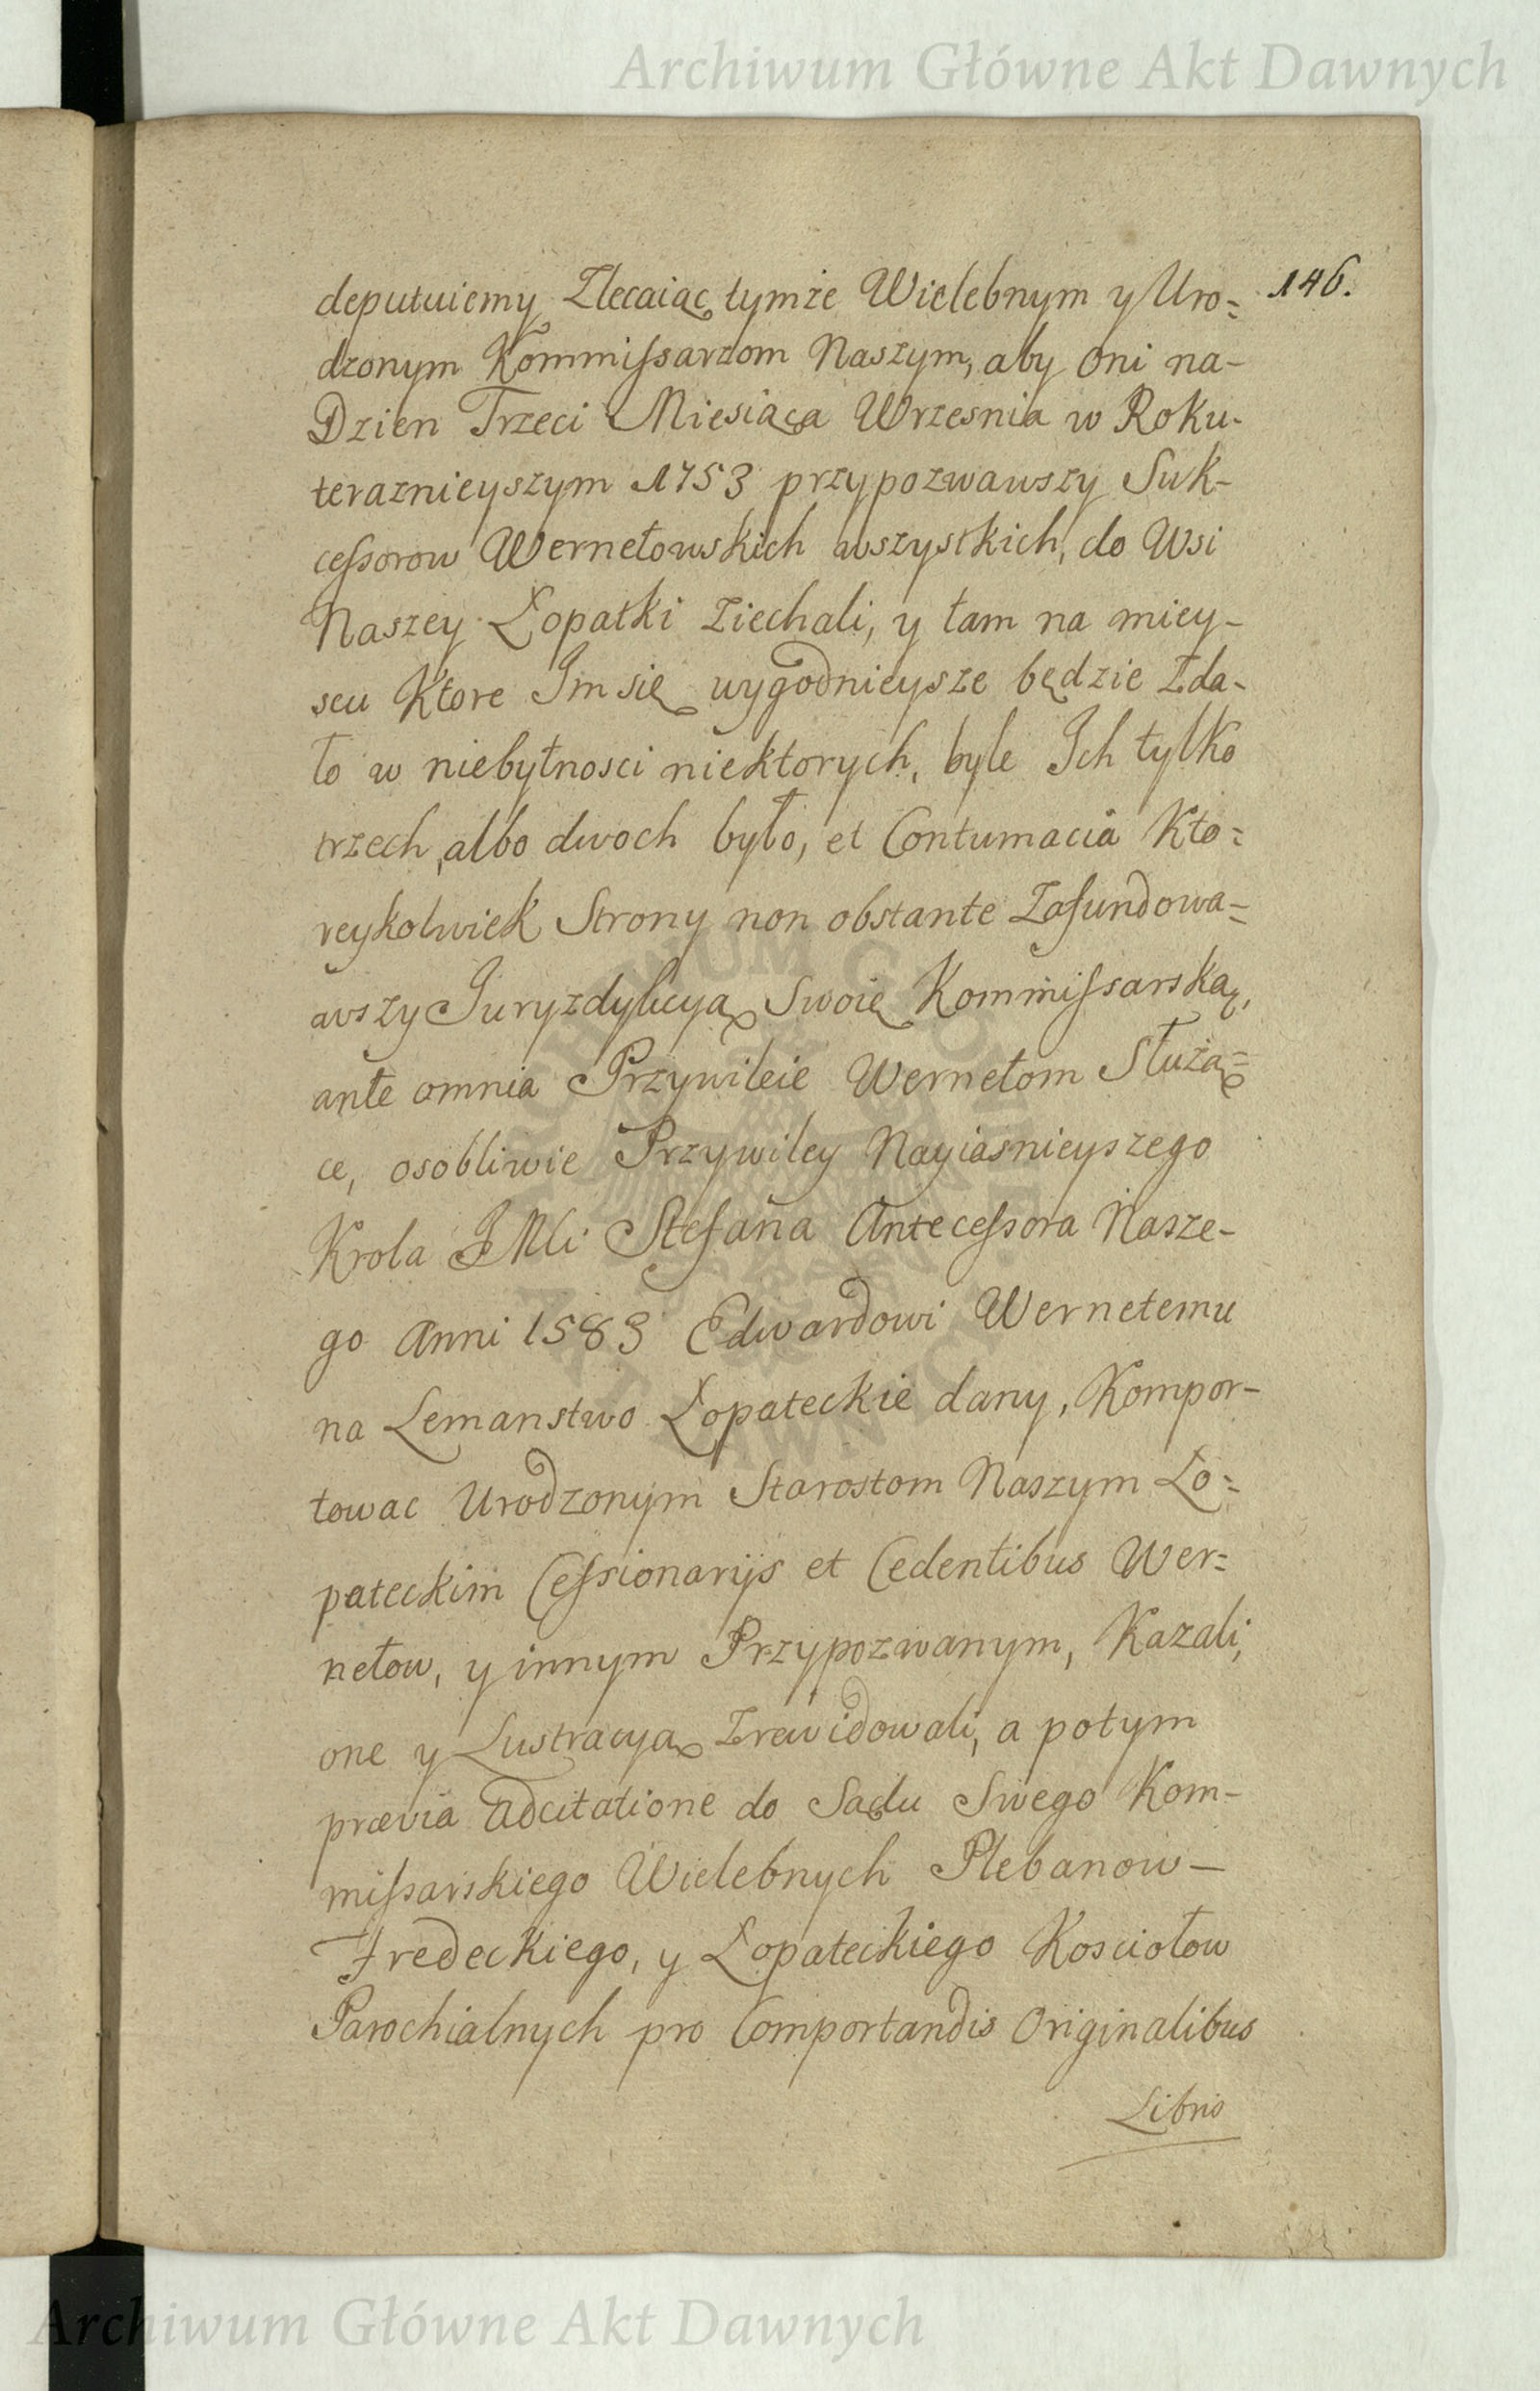 Archiwum Główne Akt Dawnych
146.
deputuiemy Zlecaiąc tymże Wielebnym y Uro=
dzonym Kommissarzom Naszym, aby oni na-
Dzien Trzeci Miesiąca Wrzesnia w Roku.
teraznieyszym 1753 przypozwawszy Suk-
cessorow Wernetowskich wszystkich, do Wsi
Naszey Łopatki Ziechali, y tam na miey-
scu Ktore Im się wygodnieysze będzie Zda-
ło w niebytnosci niektorych, byle Ich tylko
trzech albo dwoch było, et Contumacia Kto=
reykolwiek Strony non obstante Zafundowa=
wszy Juryzdykcyą Swoię Kommissarską,
ante omnia Przywileie Wernetom Służą=
ce, osobliwie Przywiley Nayiasnieyszego
Krola JMci Stefana Antecessora Nasze-
go Anni 1583 Edwardowi Wernetemu
na Lemanstwo Łopateckie dany, Kompor-
towac Urodzonym Starostom Naszym Ło=
pateckim Cessionarijs et Cedentibus Wer=
netow, y innym Przypozwanym, Kazali,
one y Lustracyą Zrewidowali, a potym
prævia Adcitatione do Sądu Swego Kom-
missarskiego Wielebnych Plebanow-
Fredeckiego, y Łopateckiego Kosciołow
Parochialnych pro Comportandis Originalibus
Libris
Archiwum Główne Akt Dawnych